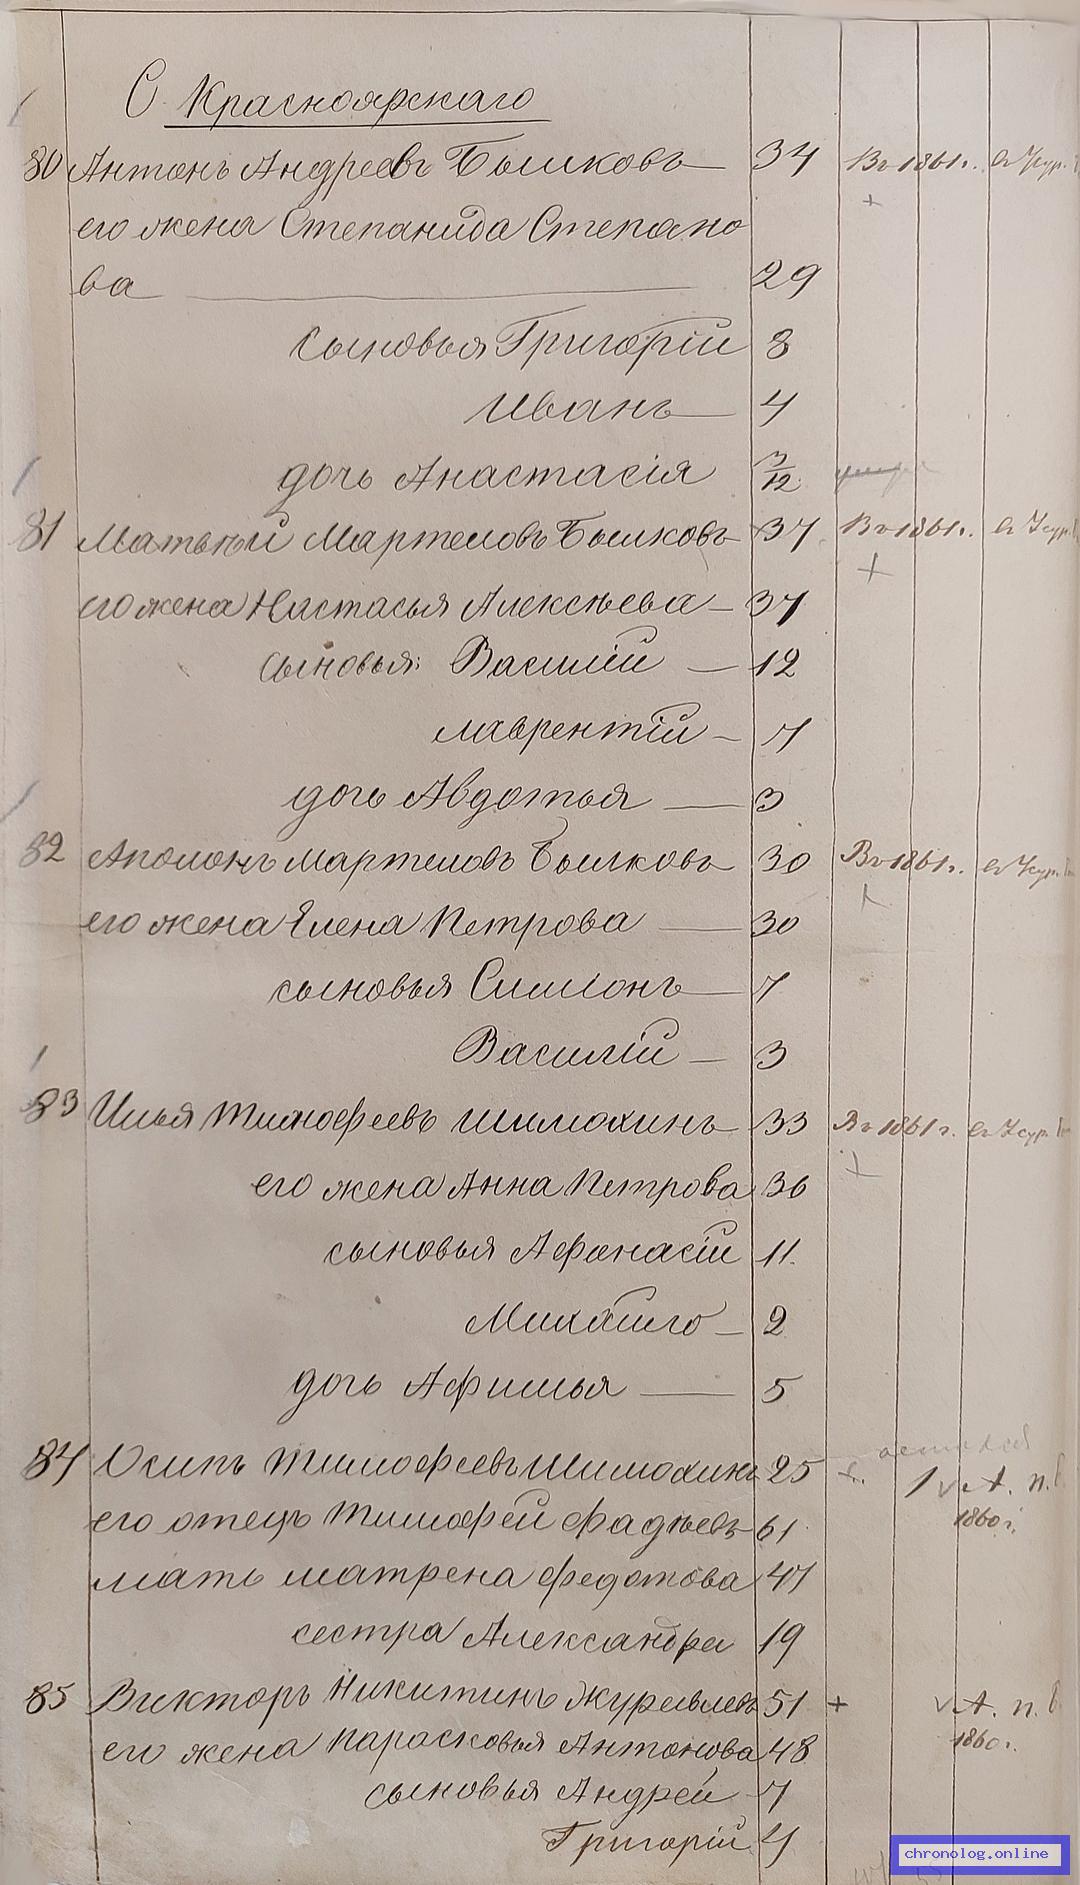 С. Красноярскаго
80 Антонъ Андреевъ Былковъ 34 Въ 1861 г. въ Усур.
его жена Степанида Степано
ва 29
сыновья Григорій 8
Иванъ 4
дочь Анастасія 3/12
81 Матвѣй Мартемовъ Былковъ 37 Въ 1861 г. въ Усур.
его жена Настасья Алексѣева 37
сыновья: Василій 12
Лаврентій 7
дочь Авдотья 3
82 Аполонъ Мартемовъ Былковъ 30 Въ 1861 г. въ Усур.
его жена Елена Петрова 30
сыновья Симіонъ 7
Василій 3
83 Илья Тимофеевъ Шимохинъ 33 Въ 1861 г. въ Усур.
его жена Анна Петрова 36
сыновья Афонасій 11.
Михайло 2
дочь Афимья 5
84 Осипъ Тимофеевъ Шимохинъ 25 + 1 v А. п.
его отецъ Тимофей Фадѣевъ 61 1860 г.
мать Матрена Федотова 47
сестра Александра 19
85 Викторъ Никитинъ Журавлевъ 51 + v А. п.
его жена Парасковья Антонова 48 1860 г.
сыновья Андрей 7
Григорій 4
chronolog.online